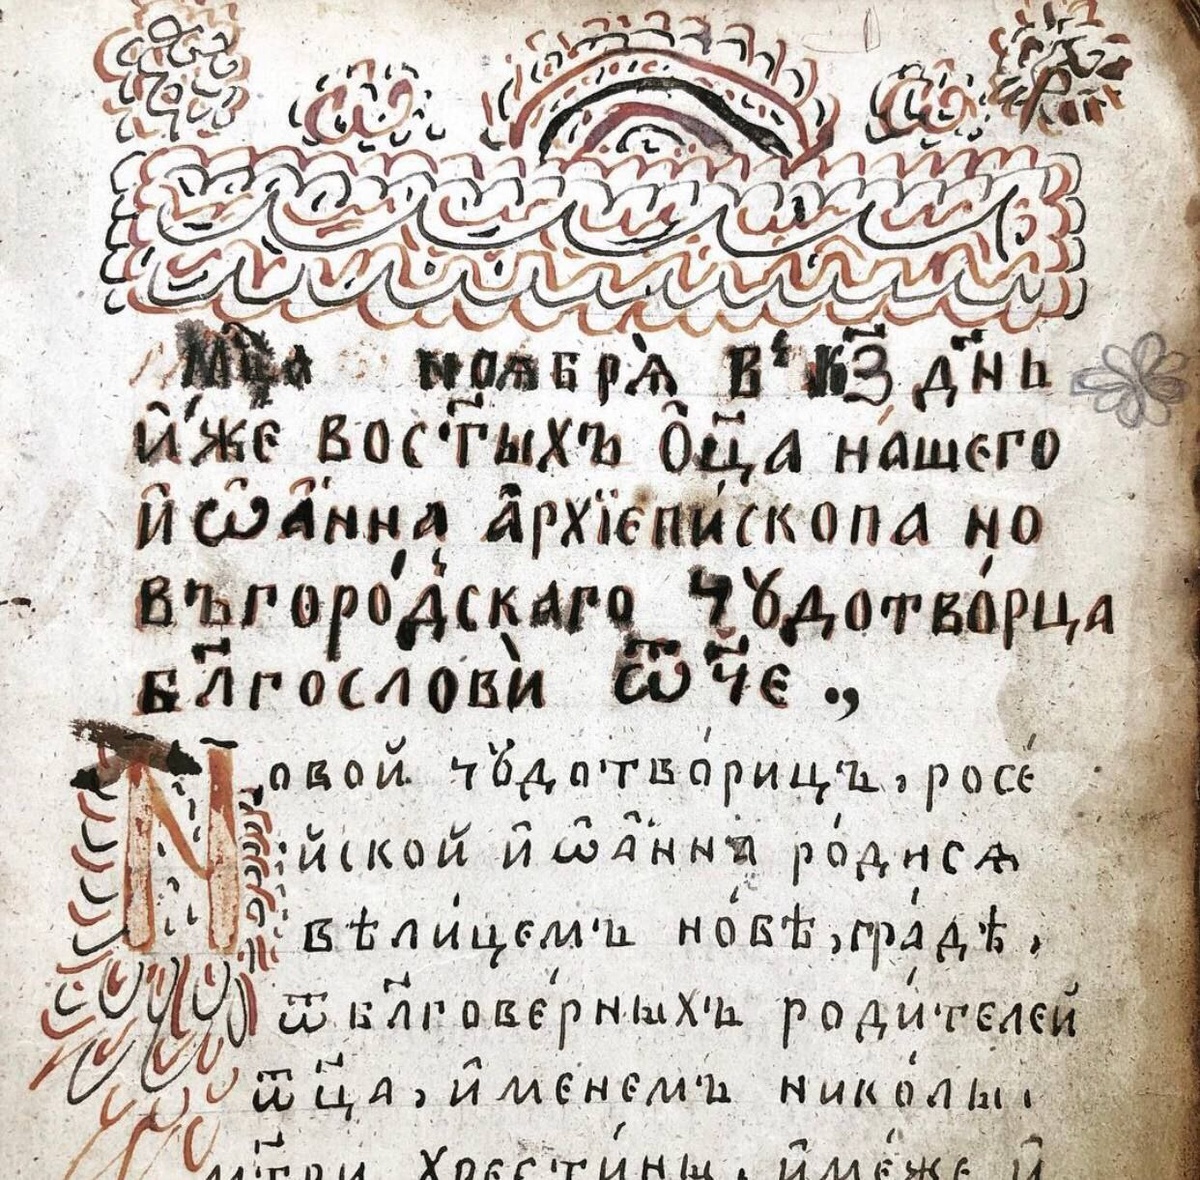 мц҃а ноября̀ в̾ к҃з д҃нь
и́же вост҃ыхъ о҆ц҃а на́шего
и҆ѡ҆а́нна а҆рхїепи́скопа но
въгоро́дскаго чꙋдотво́рца
бл҃гословѝ ѿ ч҃е
Новой чꙋдотво́рицъ, росе́
йской и҆ѡ҆а́нна ро́дисѧ
вѣли́цемъ но́вѣ, гра́дѣ,
ѿ бл҃гове́рныхъ роди́телей
ѿ ц҃а, и҆менемъ нико́лы,
мт҃ри хрести́ны, и҆ме́же и҆